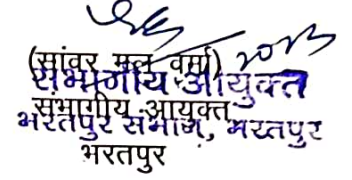 (सांवर मल वर्मा)
संभागीय आयुक्त
संभागीय आयुक्त
भरतपुर संभाग, भरतपुर
भरतपुर